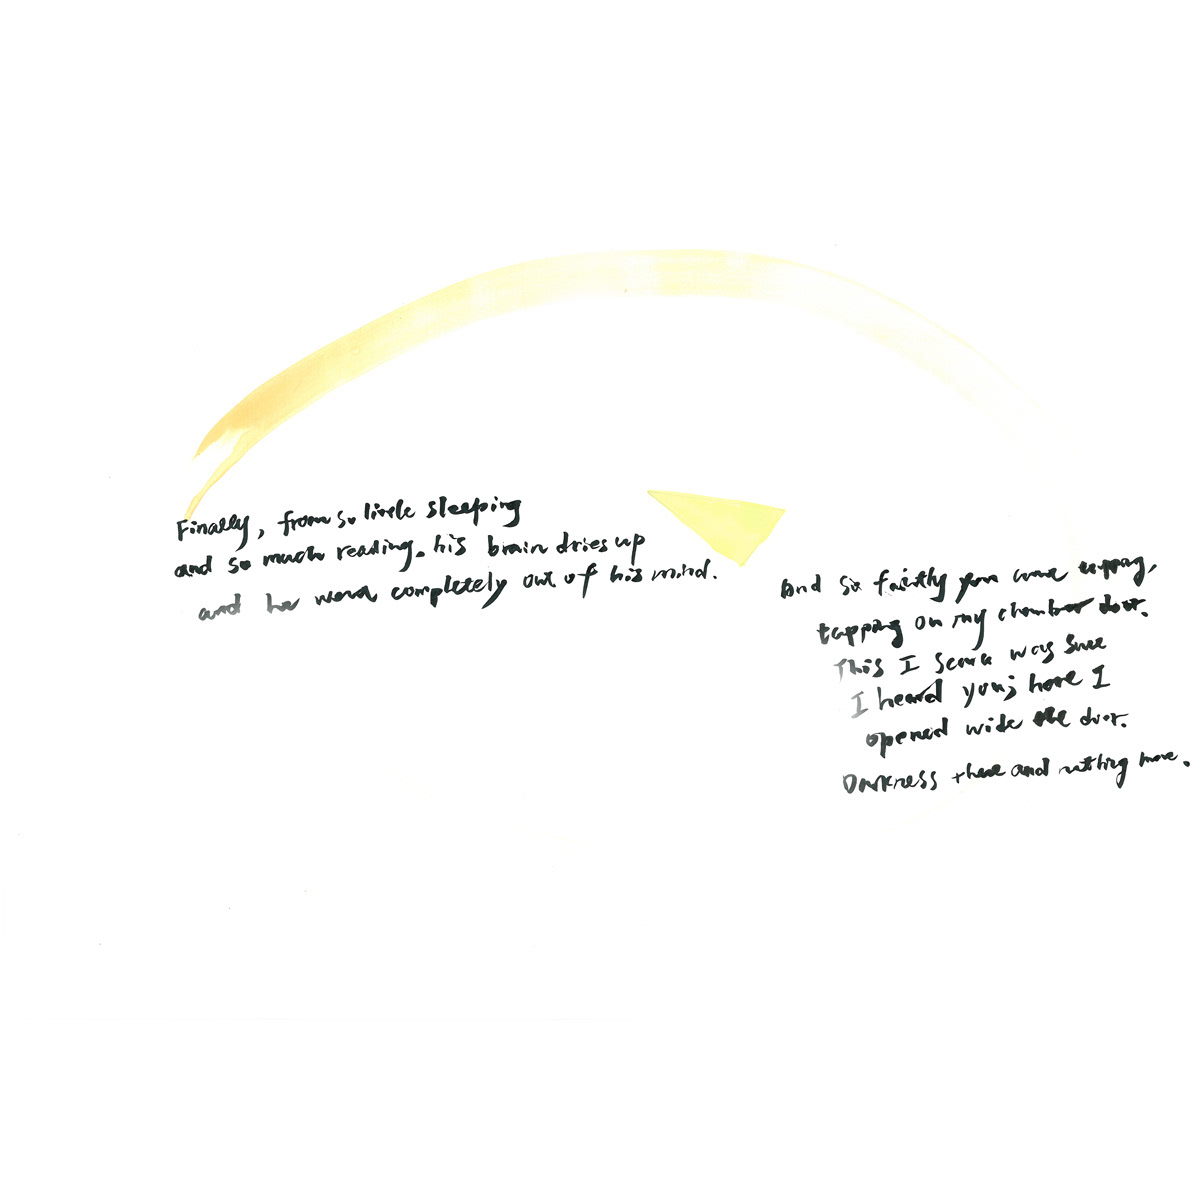 Finally, from so little sleeping
and so much reading, his brain dries up
and he went completely out of his mind.
And so faintly you came tapping,
tapping on my chamber door.
This I scarce was sure
I heard you; here I
opened wide the door.
Darkness there and nothing more.